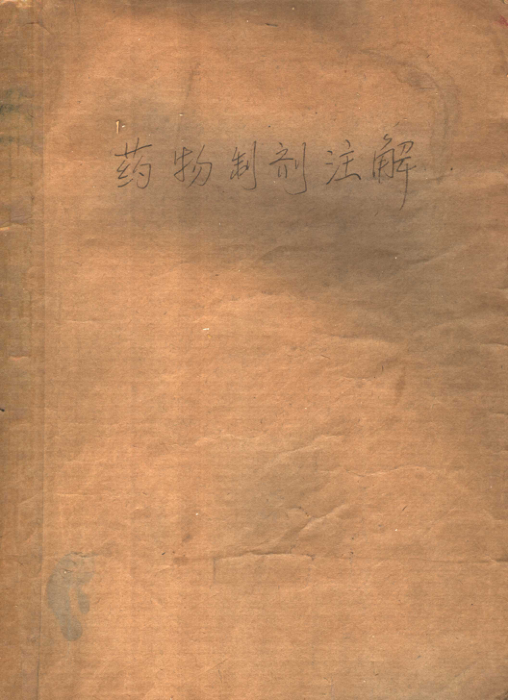 药物制剂注解